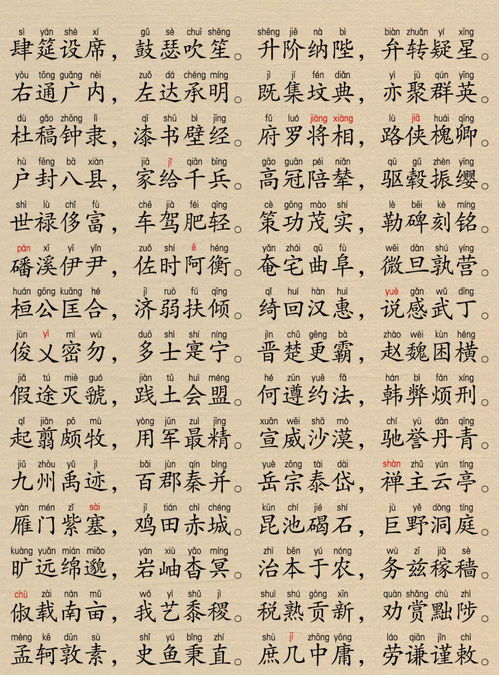 sì yán shè xí gǔ sè chuī shēng shēng jiē nà bì biàn zhuǎn yí xīng
肆筵设席，鼓瑟吹笙。升阶纳陛，弁转疑星。
yòu tōng guǎng nèi zuǒ dá chéng míng jì jí fén diǎn yì jù qún yīng
右通广内，左达承明。既集坟典，亦聚群英。
dù gǎo zhōng lì qī shū bì jīng fǔ luó jiàng xiàng lù jiā huái qīng
杜稿钟隶，漆书壁经。府罗将相，路侠槐卿。
hù fēng bā xiàn jiā jǐ qiān bīng gāo guān péi niǎn qū gǔ zhèn yīng
户封八县，家给千兵。高冠陪辇，驱毂振缨。
shì lù chǐ fù chē jià féi qīng cè gōng mào shí lè bēi kè míng
世禄侈富，车驾肥轻。策功茂实，勒碑刻铭。
pán xī yī yǐn zuǒ shí ē héng yǎn zhái qū fù wēi dàn shú yíng
磻溪伊尹，佐时阿衡。奄宅曲阜，微旦孰营。
huán gōng kuāng hé jì ruò fú qīng qǐ huí hàn huì yuè gǎn wǔ dīng
桓公匡合，济弱扶倾。绮回汉惠，说感武丁。
jùn yì mì wù duō shì shí níng jìn chǔ gēng bà zhào wèi kùn héng
俊乂密勿，多士寔宁。晋楚更霸，赵魏困横。
jiǎ tú miè guó jiàn tǔ huì méng hé zūn yuē fǎ hán bì fán xíng
假途灭虢，践土会盟。何遵约法，韩弊烦刑。
qǐ jiǎn pō mù yòng jūn zuì jīng xuān wēi shā mò chí yù dān qīng
起翦颇牧，用军最精。宣威沙漠，驰誉丹青。
jiǔ zhōu yǔ jì bǎi jùn qín bìng yuè zōng tài dài shàn zhǔ yún tíng
九州禹迹，百郡秦并。岳宗泰岱，禅主云亭。
yàn mén zǐ sài jī tián chì chéng kūn chí jié shí jù yě dòng tíng
雁门紫塞，鸡田赤城。昆池碣石，巨野洞庭。
kuàng yuǎn mián miǎo yán xiù yǎo míng zhì běn yú nóng wù zī jià sè
旷远绵邈，岩岫杳冥。治本于农，务兹稼穑。
chù zài nán mǔ wǒ yì shǔ jì shuì shú gòng xīn quàn shǎng chù zhì
俶载南亩，我艺黍稷。税熟贡新，劝赏黜陟。
mèng kē dūn sù shǐ yú bǐng zhí shù jī zhōng yōng láo qiān jǐn chì
孟轲敦素，史鱼秉直。庶几中庸，劳谦谨敕。